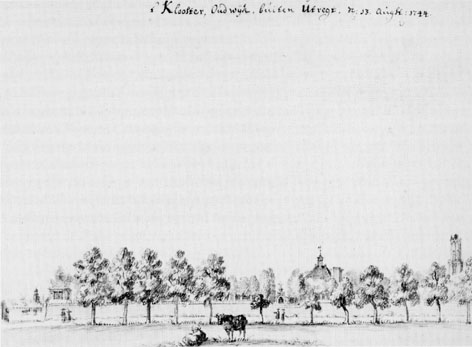 't Klooster, Oudwyk, buiten Utregt. 13 Augt: 1744.